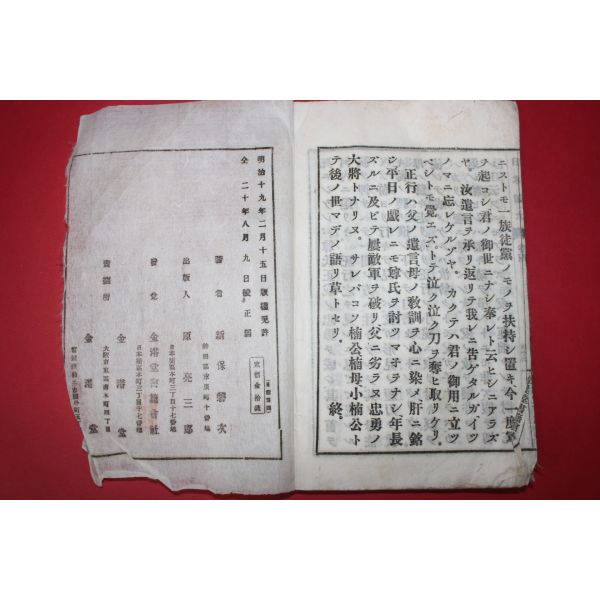 ニストモ一族徒黨ノモノヲ扶持シ置キ今一度軍
ヲ起コシ君ノ御世ニナシ奉レト云ヒシニアラズ
ヤ。汝遺言ヲ承リ返リテ我レニ告ゲタルガイツ
ノマニ忘レケルゾヤ。カクテハ君ノ御用ニ立ツ
ベシトモ覺エズ。トテ泣ク泣ク刀ヲ奪ヒ取リケリ。
正行ハ父ノ遺言母ノ教訓ヲ心ニ染メ肝ニ銘
シ平日ノ戯レニモ尊氏ヲ討ツマネヲナシ年長
ズルニ及ビテ屡敵軍ヲ破リ父ニ劣ラヌ忠勇ノ
大將トナリヌ。サレバコソ楠公楠母小楠公ト
テ後ノ世マデノ語リ草トセリ。終。
明治十九年二月十五日版權免許
仝 二十年八月 九日 正
定價金拾錢
著者 新保磐次
出版人 原亮三郎
日本橋區本町三丁目十七番地
發兌 金港堂
日本橋區本町三丁目十七番地
金港堂
大阪市東區南本町四丁目
賣捌所 金港堂